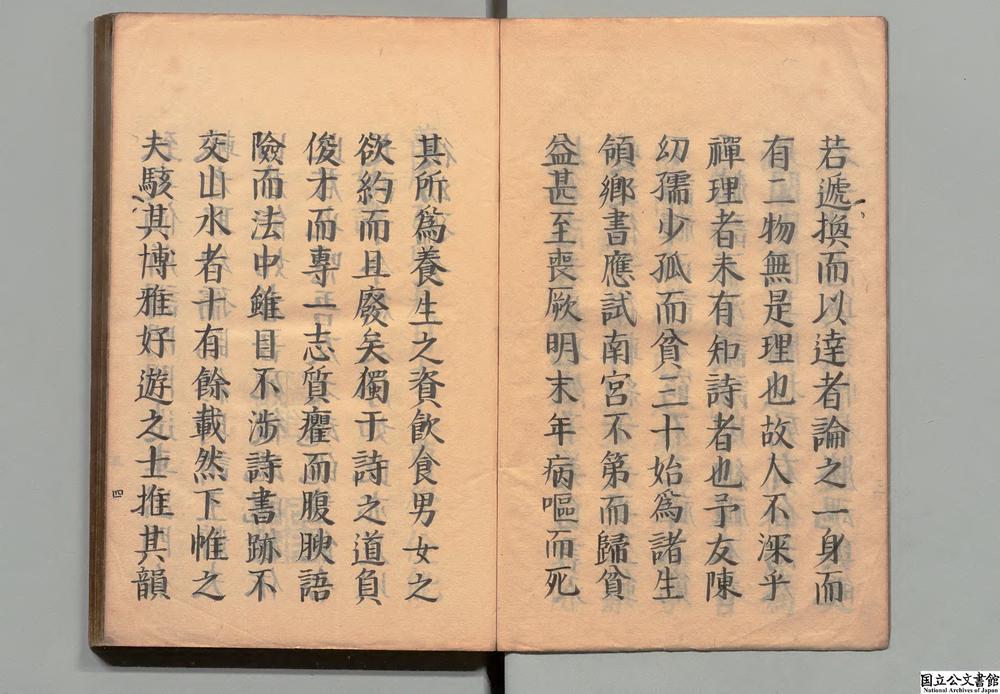 若遞換而以達者論之一身而
有二物無是理也故人不深乎
禪理者未有知詩者也予友陳
幼孺少孤而貧三十始為諸生
領鄉書應試南宮不第而歸貧
益甚至喪厥明末年病嘔而死
其所為養生之資飲食男女之
欲約而且廢矣獨于詩之道負
俊才而專一志質癯而腹腴語
險而法中雖目不涉詩書跡不
交山水者十有餘載然下帷之
夫駭其博雅好遊之士推其韻
四
国立公文書館
National Archives of Japan